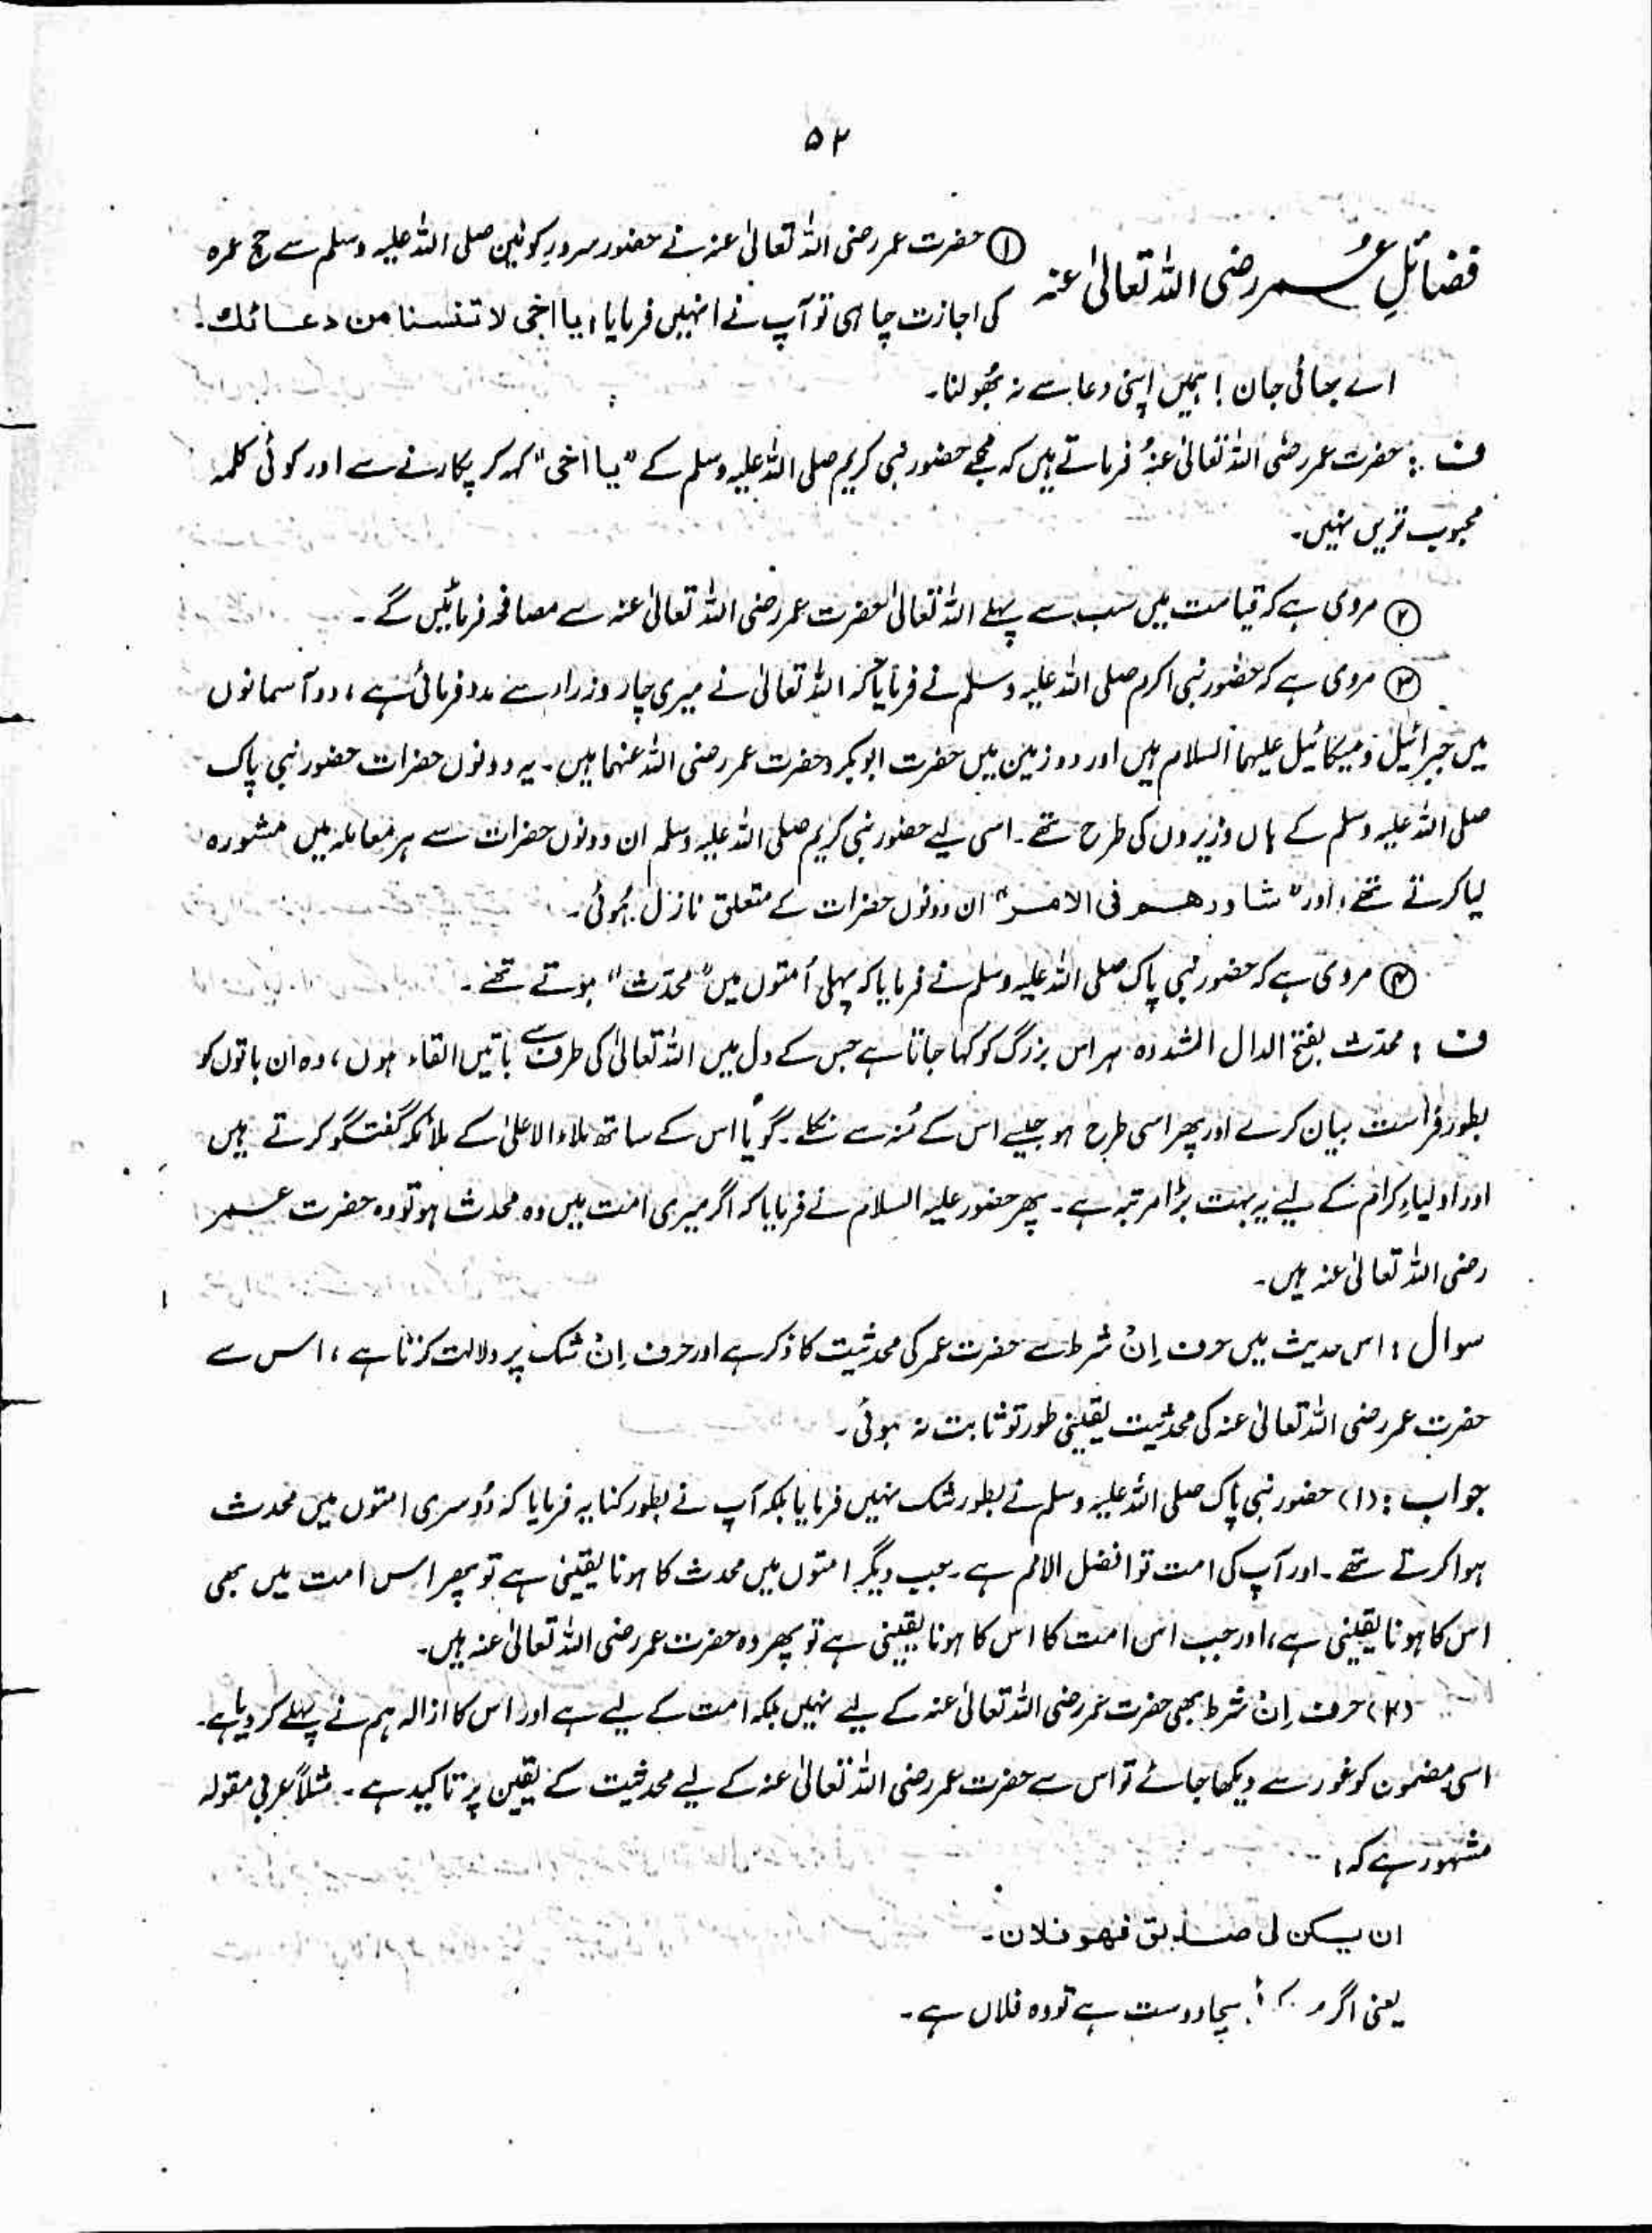 ۵۲
فضائلِ عُمر رضی اللہ تعالیٰ عنہ
① حضرت عمر رضی اللہ تعالیٰ عنہ نے حضور سرورِ کونین صلی اللہ علیہ وسلم سے حج عمرہ
کی اجازت چاہی تو آپ نے انہیں فرمایا: یا اخی لا تنسنا من دعائك۔
اے بھائی جان! ہمیں اپنی دعا سے نہ بھُولنا۔
ف: حضرت عمر رضی اللہ تعالیٰ عنہُ فرماتے ہیں کہ مجھے حضور نبی کریم صلی اللہ علیہ وسلم کے "یا اخی" کہہ کر پکارنے سے اور کوئی کلمہ
محبوب تریں نہیں۔
② مروی ہے کہ قیامت میں سب سے پہلے اللہ تعالیٰ حضرت عمر رضی اللہ تعالیٰ عنہ سے مصافحہ فرمائیں گے۔
③ مروی ہے کہ حضور نبی اکرم صلی اللہ علیہ وسلم نے فرمایا کہ اللہ تعالیٰ نے میری چار وزراء سے مدد فرمائی ہے، دو آسمانوں
میں جبرائیل و میکائیل علیہما السلام ہیں اور دو زمین میں حضرت ابوبکر و حضرت عمر رضی اللہ عنہما ہیں۔ یہ دونوں حضرات حضور نبی پاک
صلی اللہ علیہ وسلم کے ہاں وزیروں کی طرح تھے۔ اسی لیے حضور نبی کریم صلی اللہ علیہ وسلم ان دونوں حضرات سے ہر معاملہ میں مشورہ
لیا کرتے تھے، اور "شاورهم فی الامر" ان دونوں حضرات کے متعلق نازل ہُوئی۔
④ مروی ہے کہ حضور نبی پاک صلی اللہ علیہ وسلم نے فرمایا کہ پہلی اُمتوں میں "محدّث" ہوتے تھے۔
ف: محدّث بفتح الدال المشددہ ہر اس بزرگ کو کہا جاتا ہے جس کے دل میں اللہ تعالیٰ کی طرف سے باتیں القاء ہوں، وہ ان باتوں کو
بطور فراست بیان کرے اور پھر اسی طرح ہو جیسے اس کے مُنہ سے نکلے۔ گویا اس کے ساتھ ملاء الاعلیٰ کے ملائکہ گفتگو کرتے ہیں
اور اولیاءِ کرام کے لیے یہ بہت بڑا مرتبہ ہے۔ پھر حضور علیہ السلام نے فرمایا کہ اگر میری امت میں وہ محدث ہو تو وہ حضرت عمر
رضی اللہ تعالیٰ عنہ ہیں۔
سوال: اس حدیث میں حرف اِنْ شرط سے حضرت عمر کی محدثیت کا ذکر ہے اور حرف اِنْ شک پر دلالت کرتا ہے، اس سے
حضرت عمر رضی اللہ تعالیٰ عنہ کی محدثیت یقینی طور تو ثابت نہ ہوئی۔
جواب: (۱) حضور نبی پاک صلی اللہ علیہ وسلم نے بطور شک نہیں فرمایا بلکہ آپ نے بطور کنایہ فرمایا کہ دُوسری امتوں میں محدث
ہوا کرتے تھے۔ اور آپ کی امت تو افضل الامم ہے۔ جب دیگر امتوں میں محدث کا ہونا یقینی ہے تو پھر اس امت میں بھی
اس کا ہونا یقینی ہے، اور جب اس امت کا اس کا ہونا یقینی ہے تو پھر وہ حضرت عمر رضی اللہ تعالیٰ عنہ ہیں۔
(۲) حرف اِنْ شرط بھی حضرت عمر رضی اللہ تعالیٰ عنہ کے لیے نہیں بلکہ امت کے لیے ہے اور اس کا ازالہ ہم نے پہلے کر دیا ہے۔
اسی مضمون کو غور سے دیکھا جائے تو اس سے حضرت عمر رضی اللہ تعالیٰ عنہ کے لیے محدثیت کے یقین پر تاکید ہے۔ مثلاً عربی مقولہ
مشہور ہے کہ:
ان یکن لی صدیق فهو فلان۔
یعنی اگر سچا دوست ہے تو وہ فلاں ہے۔